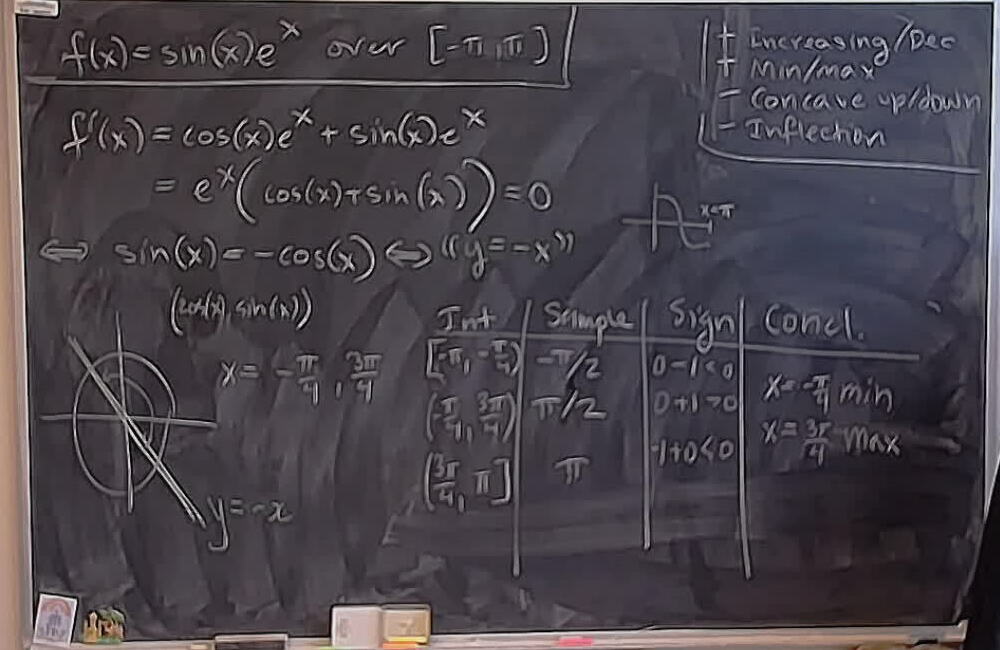 f(x) = sin(x)e^x over [-π, π]
+ Increasing/Dec
+ Min/max
- Concave up/down
- Inflection
f'(x) = cos(x)e^x + sin(x)e^x
= e^x(cos(x)+sin(x)) = 0
⟺ sin(x) = -cos(x) ⟺ "y = -x"
x=π
(cos(x), sin(x))
x = -π/4, 3π/4
y = -x
Int Sample Sign Concl.
[-π, -π/4) -π/2 0-1<0
(-π/4, 3π/4) π/2 0+1>0 x = -π/4 min
(3π/4, π] π -1+0<0 x = 3π/4 max